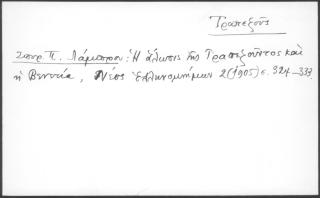 Τραπεζοῦς
Σπυρ. Π. Λάμπρου: Ἡ ἅλωσις τῆς Τραπεζοῦντος καὶ
ἡ Βενετία, Νέος Ἑλληνομνήμων 2 (1905) σ. 324-333